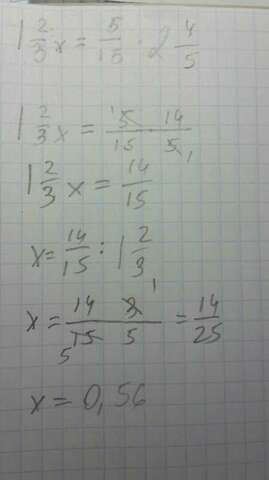 1 2/3 x = 5/15 · 2 4/5
1 2/3 x = 5 14/15 5
1 2/3 x = 14/15
x = 14/15 : 1 2/3
x = 14 3/15 5 = 14/25
x = 0,56